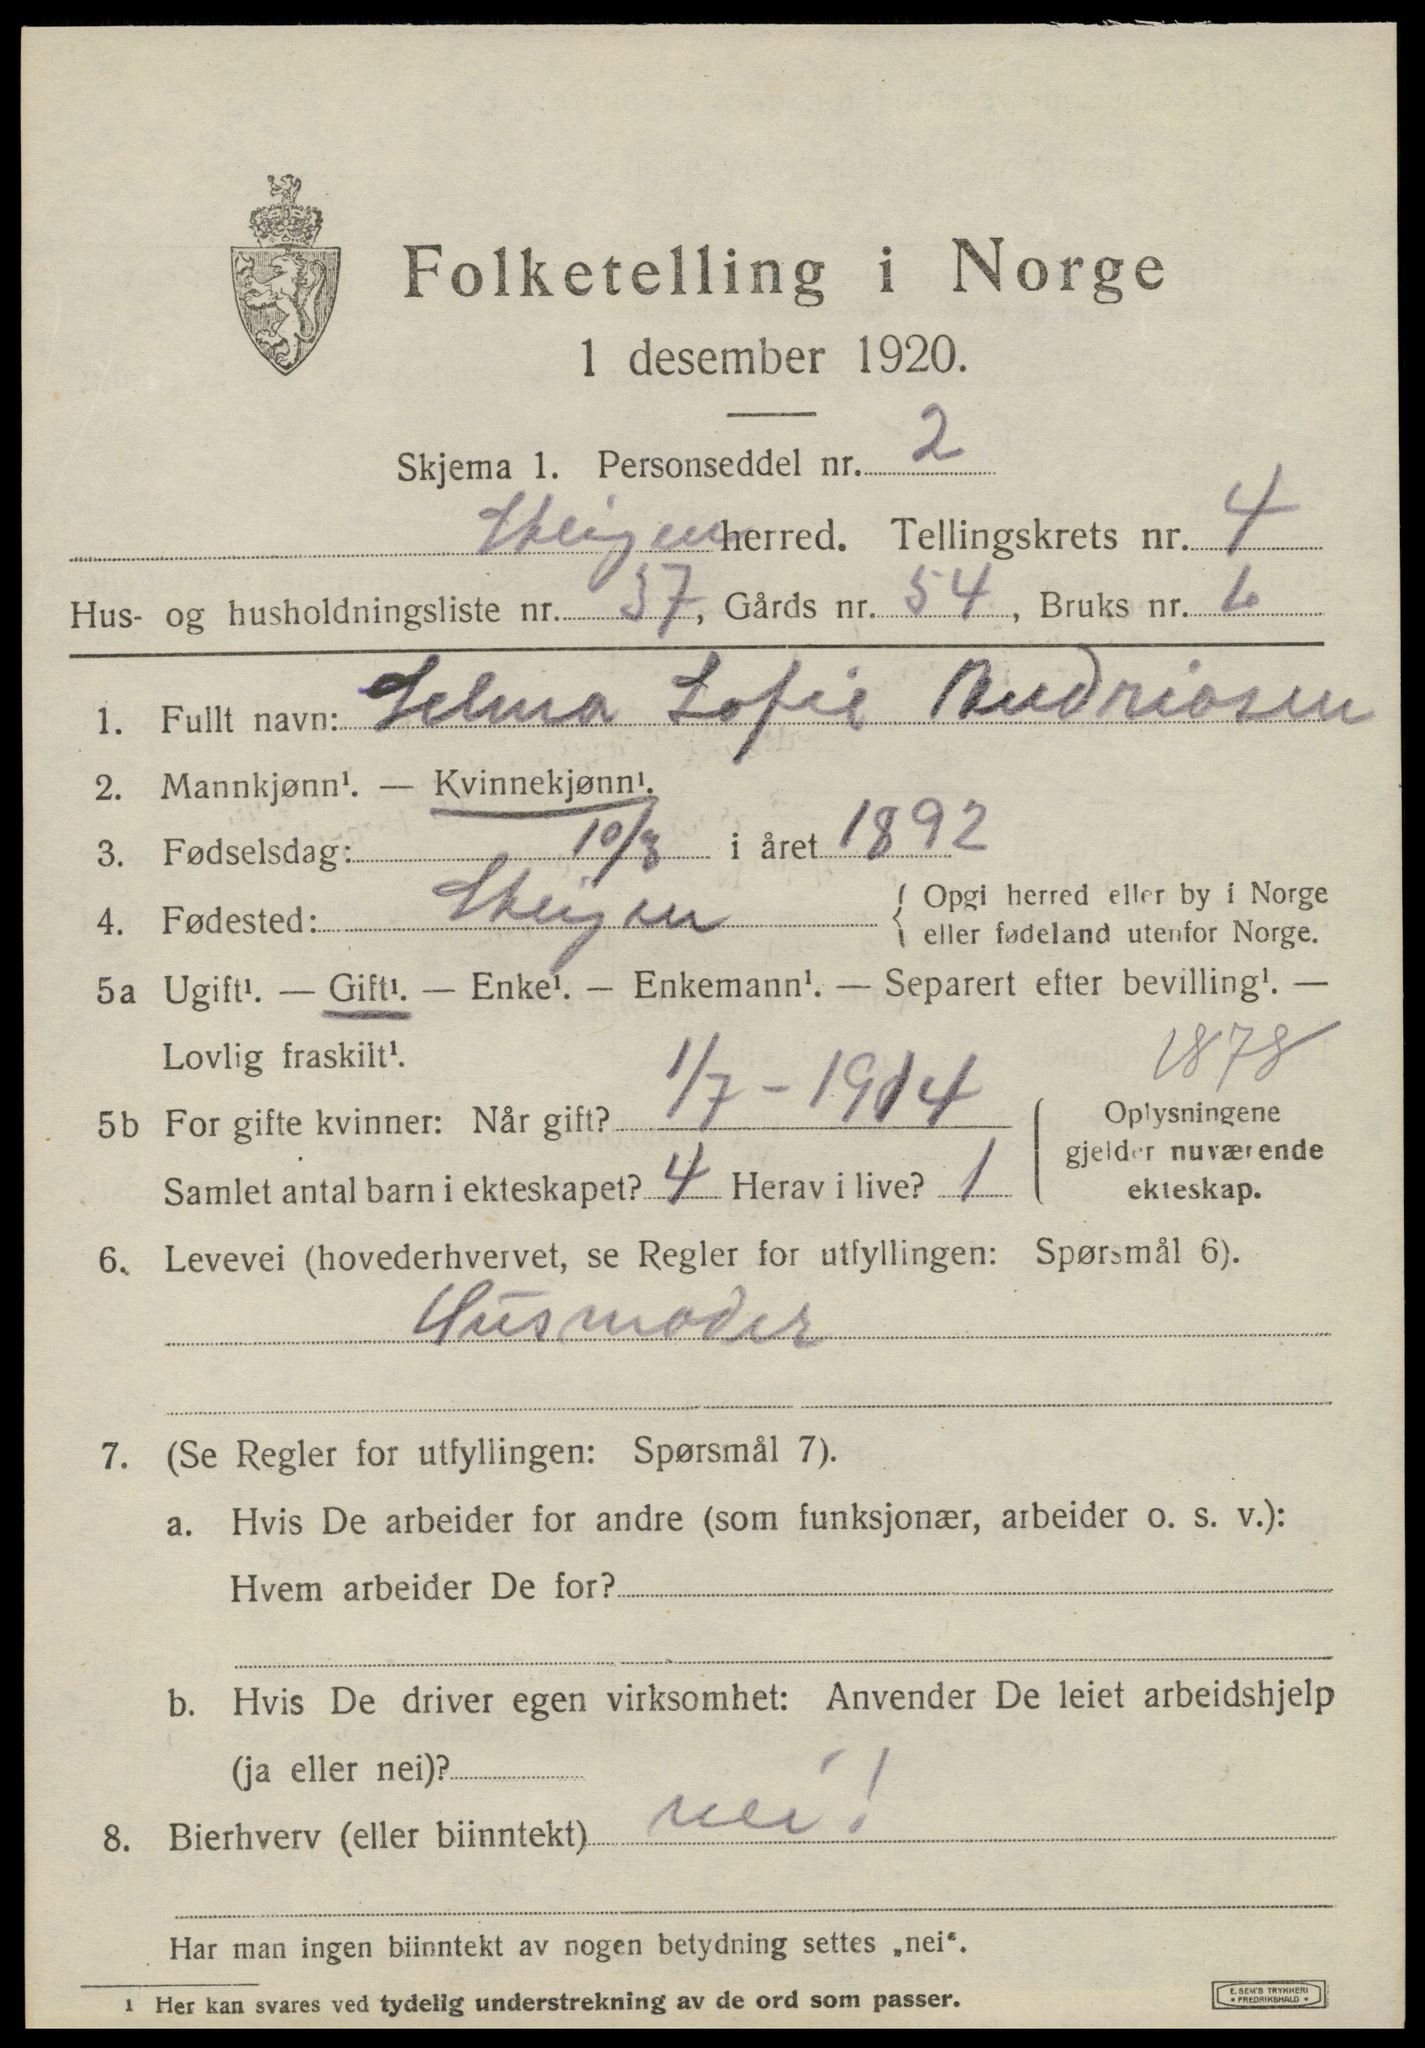 Folketelling i Norge
1 desember 1920.
Skjema 1. Personseddel nr. 2
Steigen herred. Tellingskrets nr. 4
Hus- og husholdningsliste nr. 37, Gårds nr. 54, Bruks nr. 6
1. Fullt navn: Selma Sofie Andreasen
2. Mannkjønn¹. — Kvinnekjønn¹.
3. Fødselsdag: 10/8 i året 1892
4. Fødested: Steigen { Opgi herred eller by i Norge
eller fødeland utenfor Norge.
5a Ugift¹. — Gift¹. — Enke¹. — Enkemann¹. — Separert efter bevilling¹. —
Lovlig fraskilt¹. 1878
5b For gifte kvinner: Når gift? 1/7 - 1914
Samlet antal barn i ekteskapet? 4 Herav i live? 1
Oplysningene
gjelder nuværende
ekteskap.
6. Levevei (hovederhvervet, se Regler for utfyllingen: Spørsmål 6).
Husmoder
7. (Se Regler for utfyllingen: Spørsmål 7).
a. Hvis De arbeider for andre (som funksjonær, arbeider o. s. v.):
Hvem arbeider De for?
b. Hvis De driver egen virksomhet: Anvender De leiet arbeidshjelp
(ja eller nei)?
8. Bierhverv (eller biinntekt) nei!
Har man ingen biinntekt av nogen betydning settes „nei“.
1 Her kan svares ved tydelig understrekning av de ord som passer.
E. SEM'S TRYKKERI
• FREDRIKSHALD •